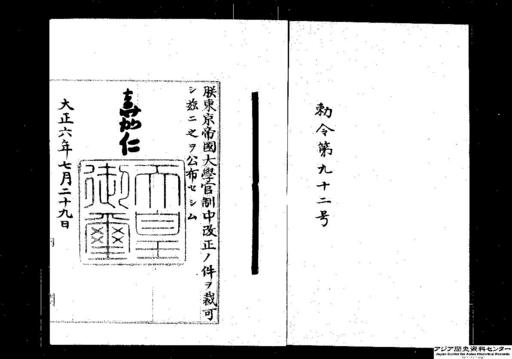 勅令第九十二号
朕東京帝國大學官制中改正ノ件ヲ裁可
シ茲ニ之ヲ公布セシム
嘉仁
天皇御璽
大正六年七月二十九日
アジア歴史資料センター
Japan Center for Asian Historical Records